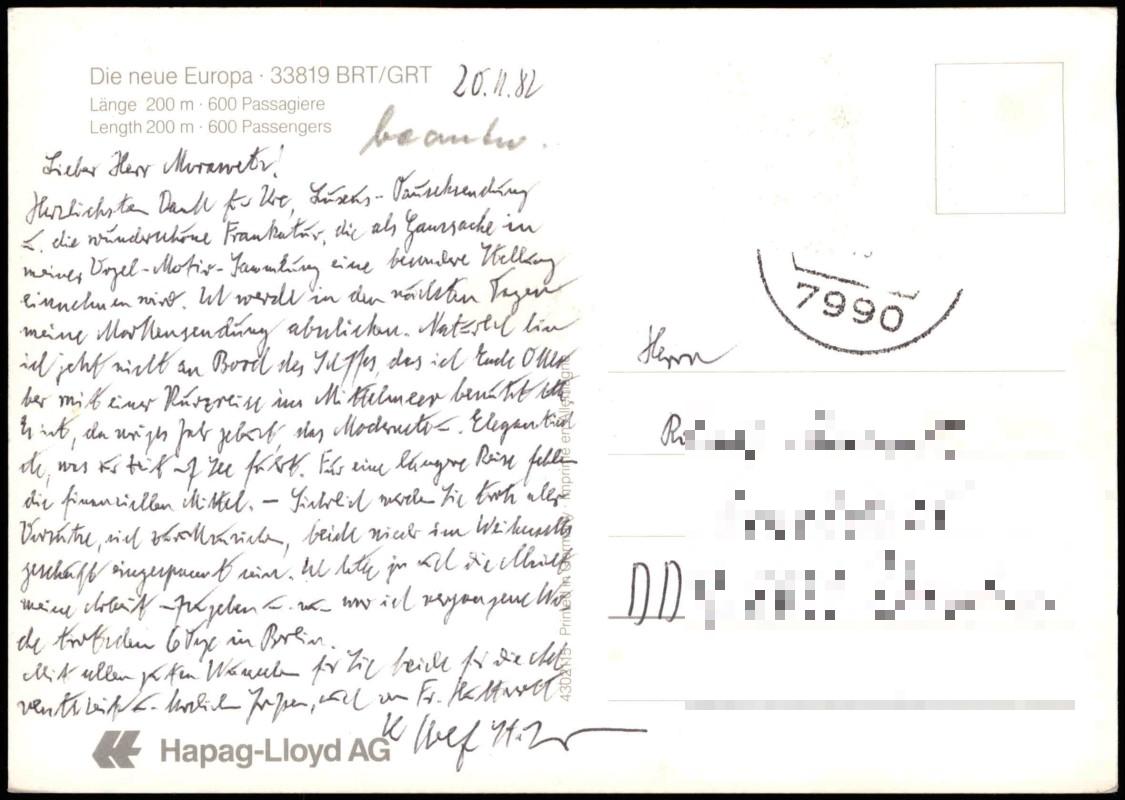 Die neue Europa · 33819 BRT/GRT
20.11.82
Länge 200 m · 600 Passagiere
Length 200 m · 600 Passengers
beantw.
Lieber Herr Morawetz!
Herzlichsten Dank für Ihre Luxus-Tauschsendung
u. die wunderschöne Frankatur, die als Ganzsache in
meiner Vogel-Motiv-Sammlung eine besondere Stellung
einnehmen wird. Ich werde in den nächsten Tagen
meine Markensendung abschicken. Natürlich bin
ich jetzt nicht an Bord des Schiffes, das ich Ende Okto
ber mit einer Kurzreise im Mittelmeer benützt
Es ist, da voriges Jahr gebaut, das Modernste u. Eleganteste
was zur Zeit auf See fährt. Für eine längere Reise fehlen
die finanziellen Mittel. – Sicherlich werden Sie trotz aller
Vorsätze, sich zurückzuziehen, beide wieder im Weihnachts
geschäft eingespannt sein. Ich hatte ja auch die Absicht
meine Arbeit aufzugeben u. war ich vergangene Wo
che trotzdem 6 Tage in Berlin.
Mit allen guten Wünschen für Sie beide für die
u. herzlichen Grüßen, auch von Fr.
Hapag-Lloyd AG
4302115 · Printed in Germany · Imprimé en Allemagne
7990
Herrn
DD